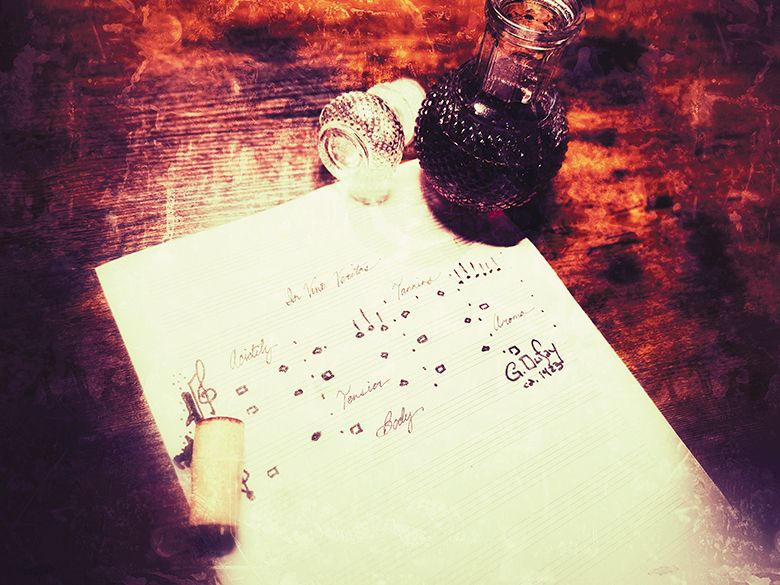 In Vino Veritas
Tannins
Acidity
Aroma
Tension
Body
G. Dufay
ca. 1423